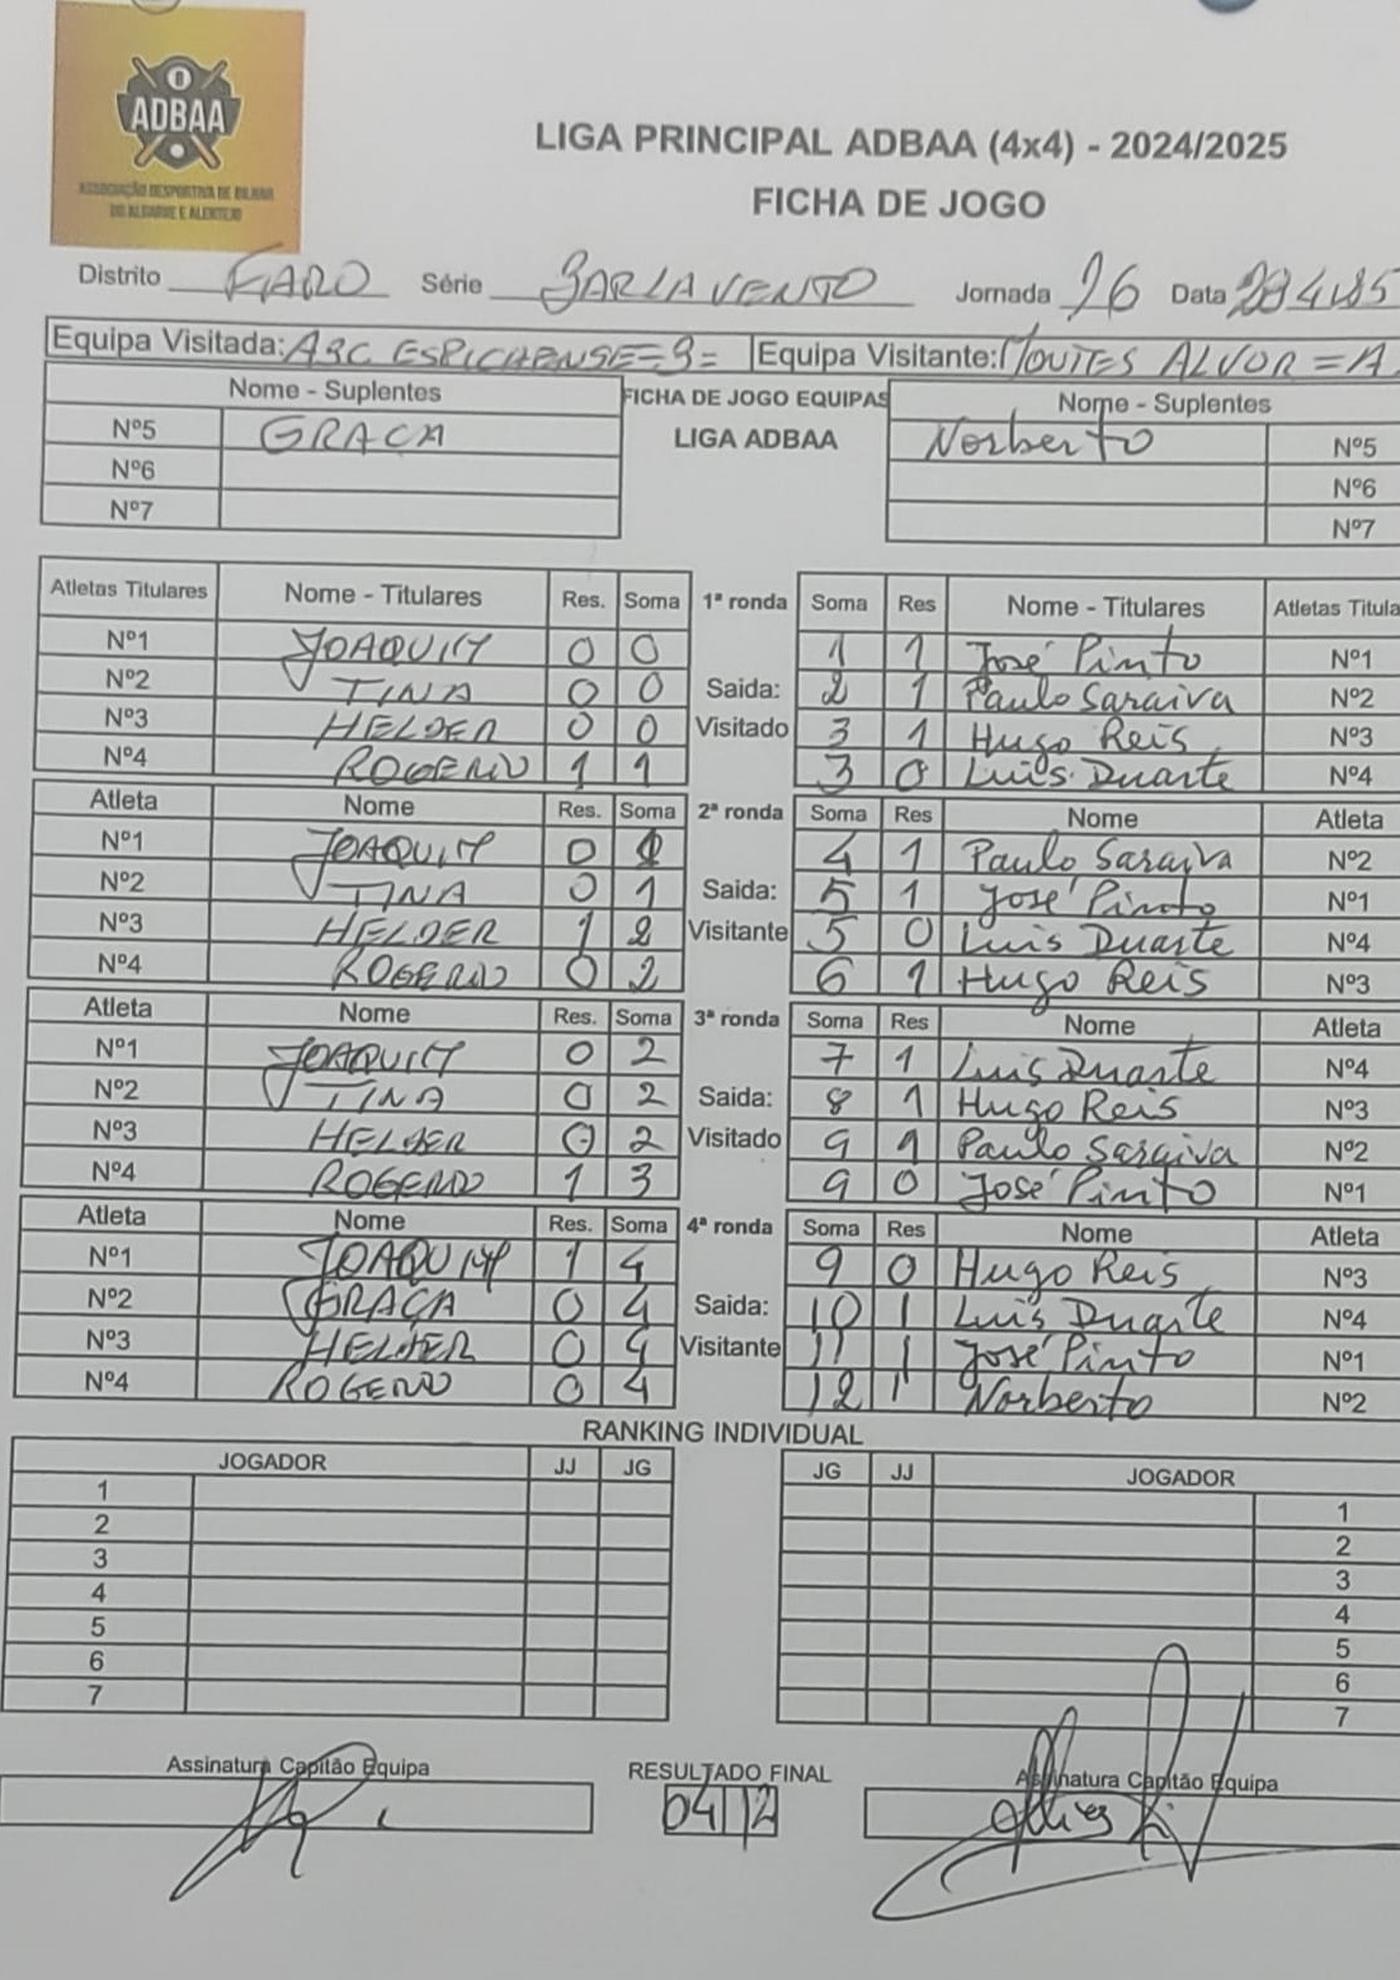 ADBAA
ASSOCIAÇÃO DESPORTIVA DE BILHAR
DO ALGARVE E ALENTEJO
LIGA PRINCIPAL ADBAA (4x4) - 2024/2025
FICHA DE JOGO
Distrito FARO Série BARLAVENTO Jornada 16 Data
Equipa Visitada: ARC ESPICHENSE =B= Equipa Visitante: MONTES ALVOR =A
Nome - Suplentes FICHA DE JOGO EQUIPAS Nome - Suplentes
Nº5 GRAÇA LIGA ADBAA Norberto Nº5
Nº6 Nº6
Nº7 Nº7
Atletas Titulares Nome - Titulares Res. Soma 1ª ronda Soma Res Nome - Titulares Atletas Titula
Nº1 JOAQUIM 0 0 1 1 José Pinto Nº1
Nº2 TINA 0 0 Saida: 2 1 Paulo Saraiva Nº2
Nº3 HELDER 0 0 Visitado 3 1 Hugo Reis Nº3
Nº4 ROGERIO 1 1 3 0 Luis Duarte Nº4
Atleta Nome Res. Soma 2ª ronda Soma Res Nome Atleta
Nº1 JOAQUIM 0 1 4 1 Paulo Saraiva Nº2
Nº2 TINA 0 1 Saida: 5 1 José Pinto Nº1
Nº3 HELDER 1 2 Visitante 5 0 Luis Duarte Nº4
Nº4 ROGERIO 0 2 6 1 Hugo Reis Nº3
Atleta Nome Res. Soma 3ª ronda Soma Res Nome Atleta
Nº1 JOAQUIM 0 2 7 1 Luis Duarte Nº4
Nº2 TINA 0 2 Saida: 8 1 Hugo Reis Nº3
Nº3 HELDER 0 2 Visitado 9 1 Paulo Saraiva Nº2
Nº4 ROGERIO 1 3 9 0 José Pinto Nº1
Atleta Nome Res. Soma 4ª ronda Soma Res Nome Atleta
Nº1 JOAQUIM 1 4 9 0 Hugo Reis Nº3
Nº2 GRAÇA 0 4 Saida: 10 1 Luis Duarte Nº4
Nº3 HELDER 0 4 Visitante 11 1 José Pinto Nº1
Nº4 ROGERIO 0 4 12 1 Norberto Nº2
RANKING INDIVIDUAL
JOGADOR JJ JG JG JJ JOGADOR
1 1
2 2
3 3
4 4
5 5
6 6
7 7
Assinatura Capitão Equipa RESULTADO FINAL Assinatura Capitão Equipa
04 12